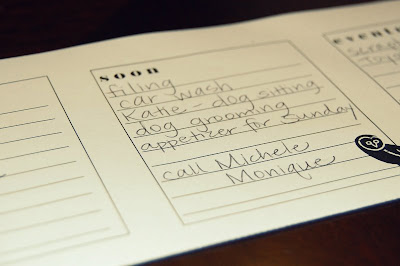 soon
filing
car wash
Katie - dog sitting
dog grooming
appetizer for Sunday
call Michele
Monique
evening